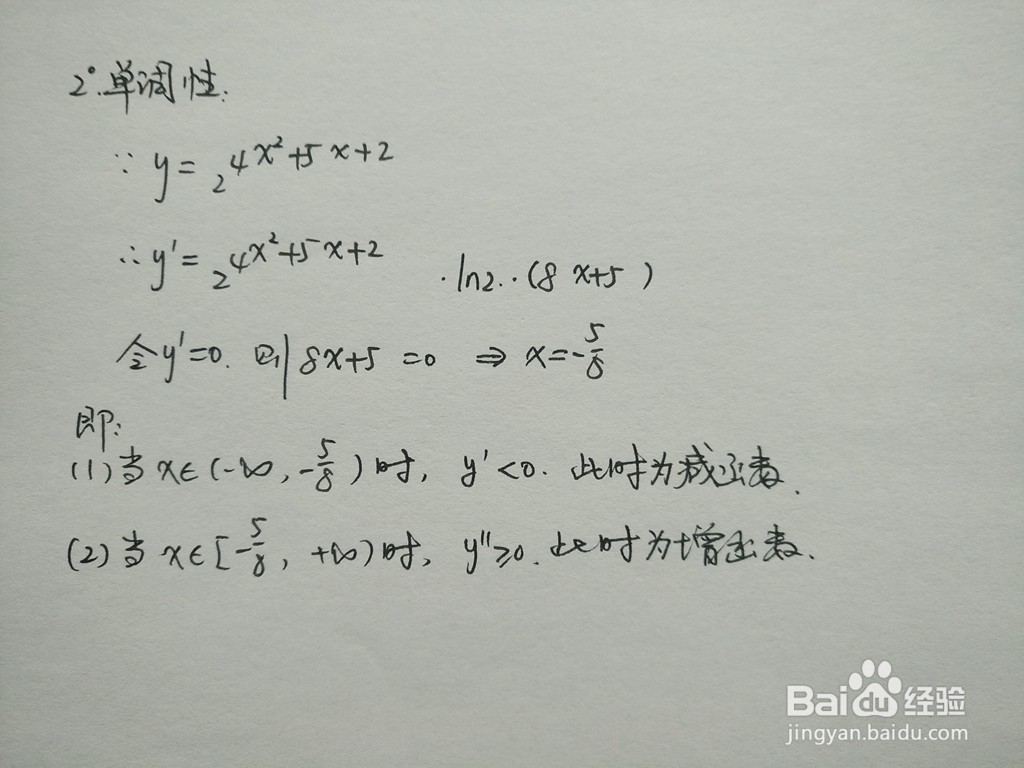 2°.单调性.
∵ y = 2^{4x²+5x+2}
∴ y' = 2^{4x²+5x+2} · ln2 · (8x+5)
令y'=0. 则 8x+5 =0 ⇒ x=-5/8
即:
(1) 当 x∈(-∞, -5/8) 时, y'<0. 此时为减函数.
(2) 当 x∈[-5/8, +∞) 时, y''≥0. 此时为增函数.
Baidu经验
jingyan.baidu.com